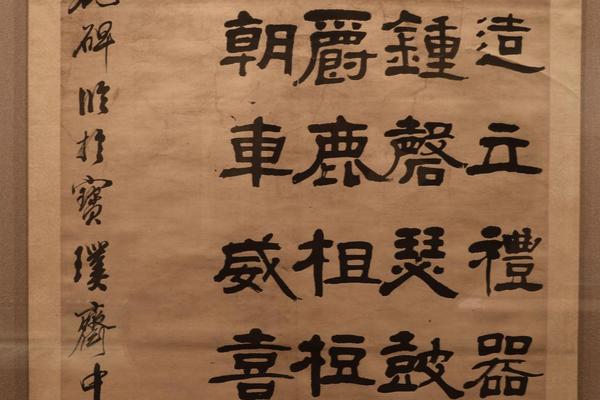 造立禮器
鍾磬瑟鼓
爵鹿柤梪
朝車威喜
碑臨於寶璞齋中